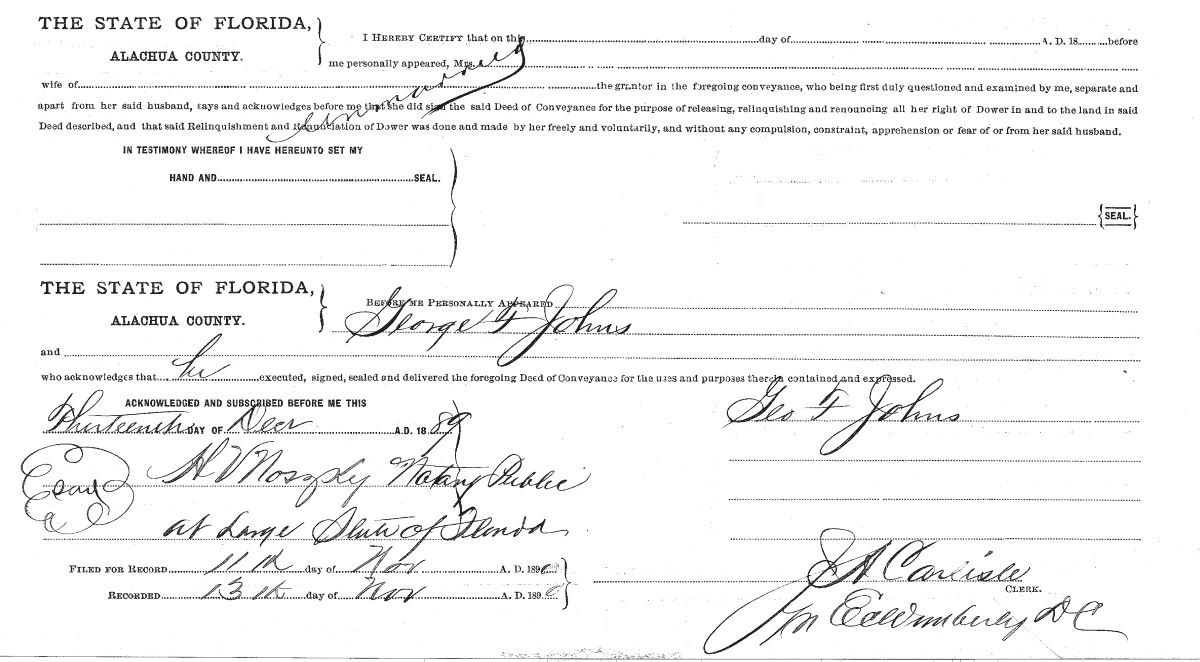 THE STATE OF FLORIDA,
ALACHUA COUNTY.
I HEREBY CERTIFY that on this day of A. D. 18 before
me personally appeared, Mrs.
unmarried
wife of the grantor in the foregoing conveyance, who being first duly questioned and examined by me, separate and
apart from her said husband, says and acknowledges before me that she did sign the said Deed of Conveyance for the purpose of releasing, relinquishing and renouncing all her right of Dower in and to the land in said
Deed described, and that said Relinquishment and Renunciation of Dower was done and made by her freely and voluntarily, and without any compulsion, constraint, apprehension or fear of or from her said husband.
IN TESTIMONY WHEREOF I HAVE HEREUNTO SET MY
HAND AND SEAL.
SEAL.
THE STATE OF FLORIDA,
ALACHUA COUNTY.
BEFORE ME PERSONALLY APPEARED
George F Johns
and
who acknowledges that he executed, signed, sealed and delivered the foregoing Deed of Conveyance for the uses and purposes therein contained and expressed.
ACKNOWLEDGED AND SUBSCRIBED BEFORE ME THIS
Thirteenth DAY OF Decr A.D. 18 89
Geo F Johns
H V Notary Public
at Large State of Florida
FILED FOR RECORD 11th day of Nov A. D. 189
J A Carlisle
CLERK.
RECORDED 13th day of Nov A. D. 189
Wimberly DC